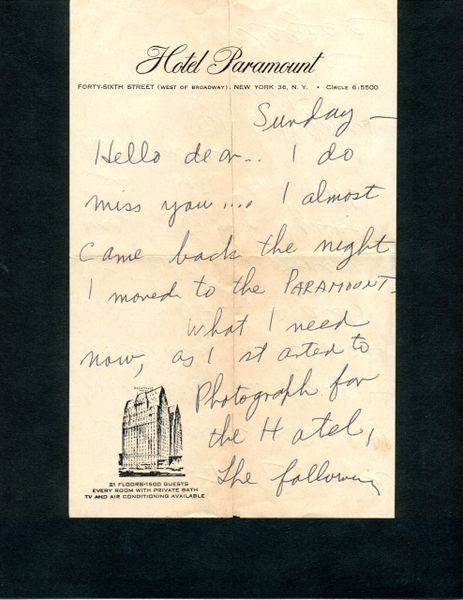 Hotel Paramount
FORTY-SIXTH STREET (WEST OF BROADWAY), NEW YORK 36, N. Y. • CIrcle 6-5500
Sunday —
Hello dear... I do
miss you.... I almost
came back the night
I moved to the PARAMOUNT-
What I need
now, as I started to
Photograph for
the Hotel,
the following
21 FLOORS-1500 GUESTS
EVERY ROOM WITH PRIVATE BATH
TV AND AIR CONDITIONING AVAILABLE